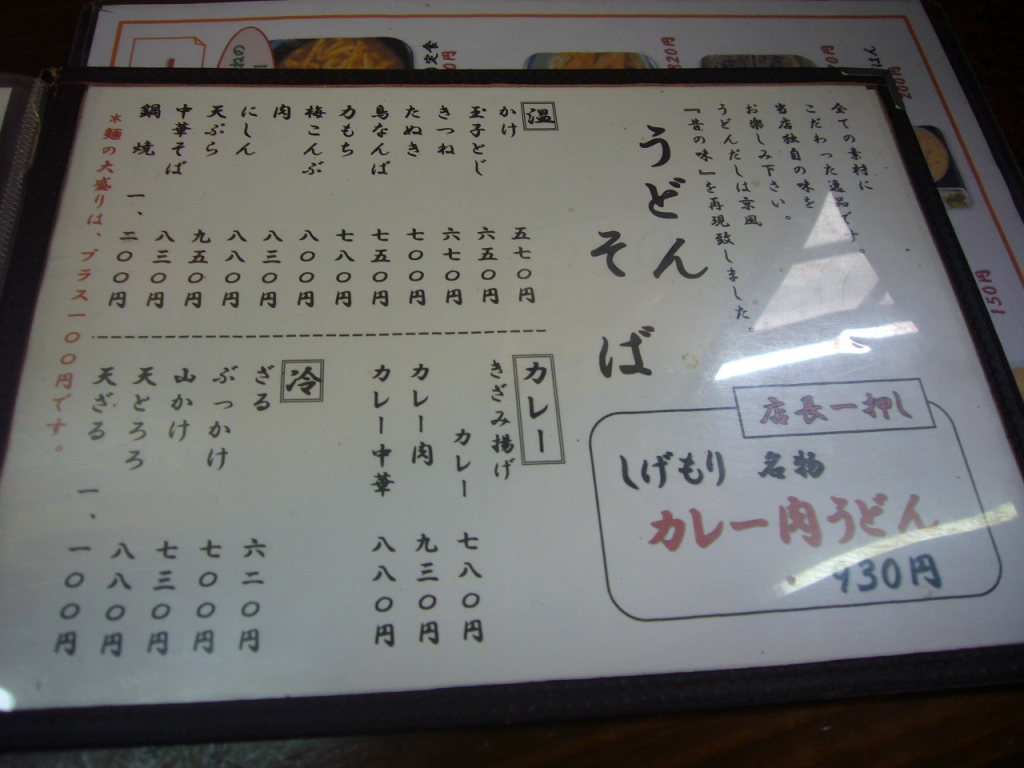 全ての素材に
こだわった逸品です。
当店独自の味を
お楽しみ下さい。
うどんだしは京風
『昔の味』を再現致しました。
うどん
そば
店長一押し
しげもり 名物
カレー肉うどん
930円
温
かけ 五七〇円
玉子とじ 六五〇円
きつね 六七〇円
たぬき 七〇〇円
鳥なんば 七五〇円
力もち 七八〇円
梅こんぶ 八〇〇円
肉 八三〇円
にしん 八八〇円
天ぷら 九五〇円
中華そば 八三〇円
鍋焼 一、二〇〇円
カレー
きざみ揚げ
カレー 七八〇円
カレー肉 九三〇円
カレー中華 八八〇円
冷
ざる 六二〇円
ぶっかけ 七〇〇円
山かけ 七三〇円
天とろろ 八八〇円
天ざる 一、一〇〇円
＊麺の大盛りは、プラス一〇〇円です。
定食
820円
200円
150円